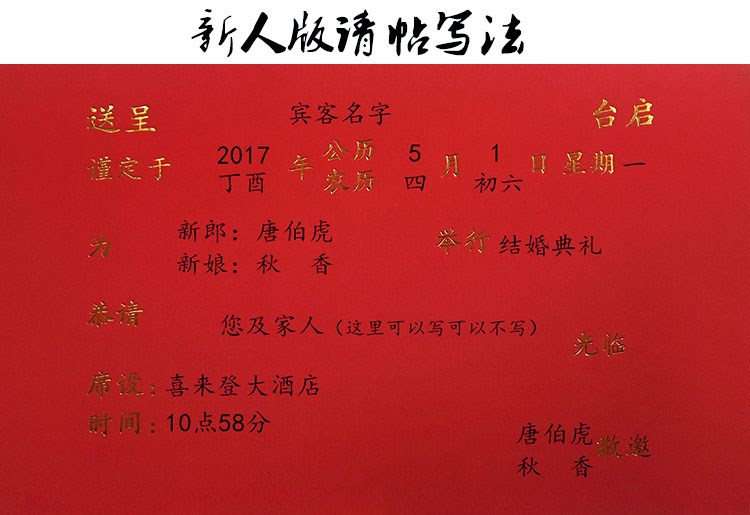 新人版请帖写法
送呈 宾客名字 台启
谨定于 2017 年 公历 5 月 1 日 星期一
丁酉 农历 四 初六
为 新郎：唐伯虎 举行 结婚典礼
新娘：秋 香
恭请 您及家人（这里可以写可以不写） 光临
席设：喜来登大酒店
时间：10点58分
唐伯虎 敬邀
秋 香